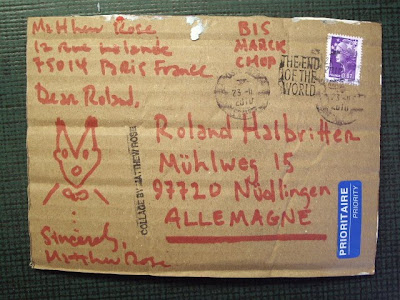 Matthew Rose
12 rue
75014 Paris France
Dear Roland,
BIS
MARCK
CHOP
THE END
OF THE
WORLD
23-11
2010
Roland Halbritter
Mühlweg 15
97720 Nüdlingen
ALLEMAGNE
COLLAGE BY MATTHEW ROSE
Sincerely,
Matthew Rose
PRIORITAIRE
PRIORITY